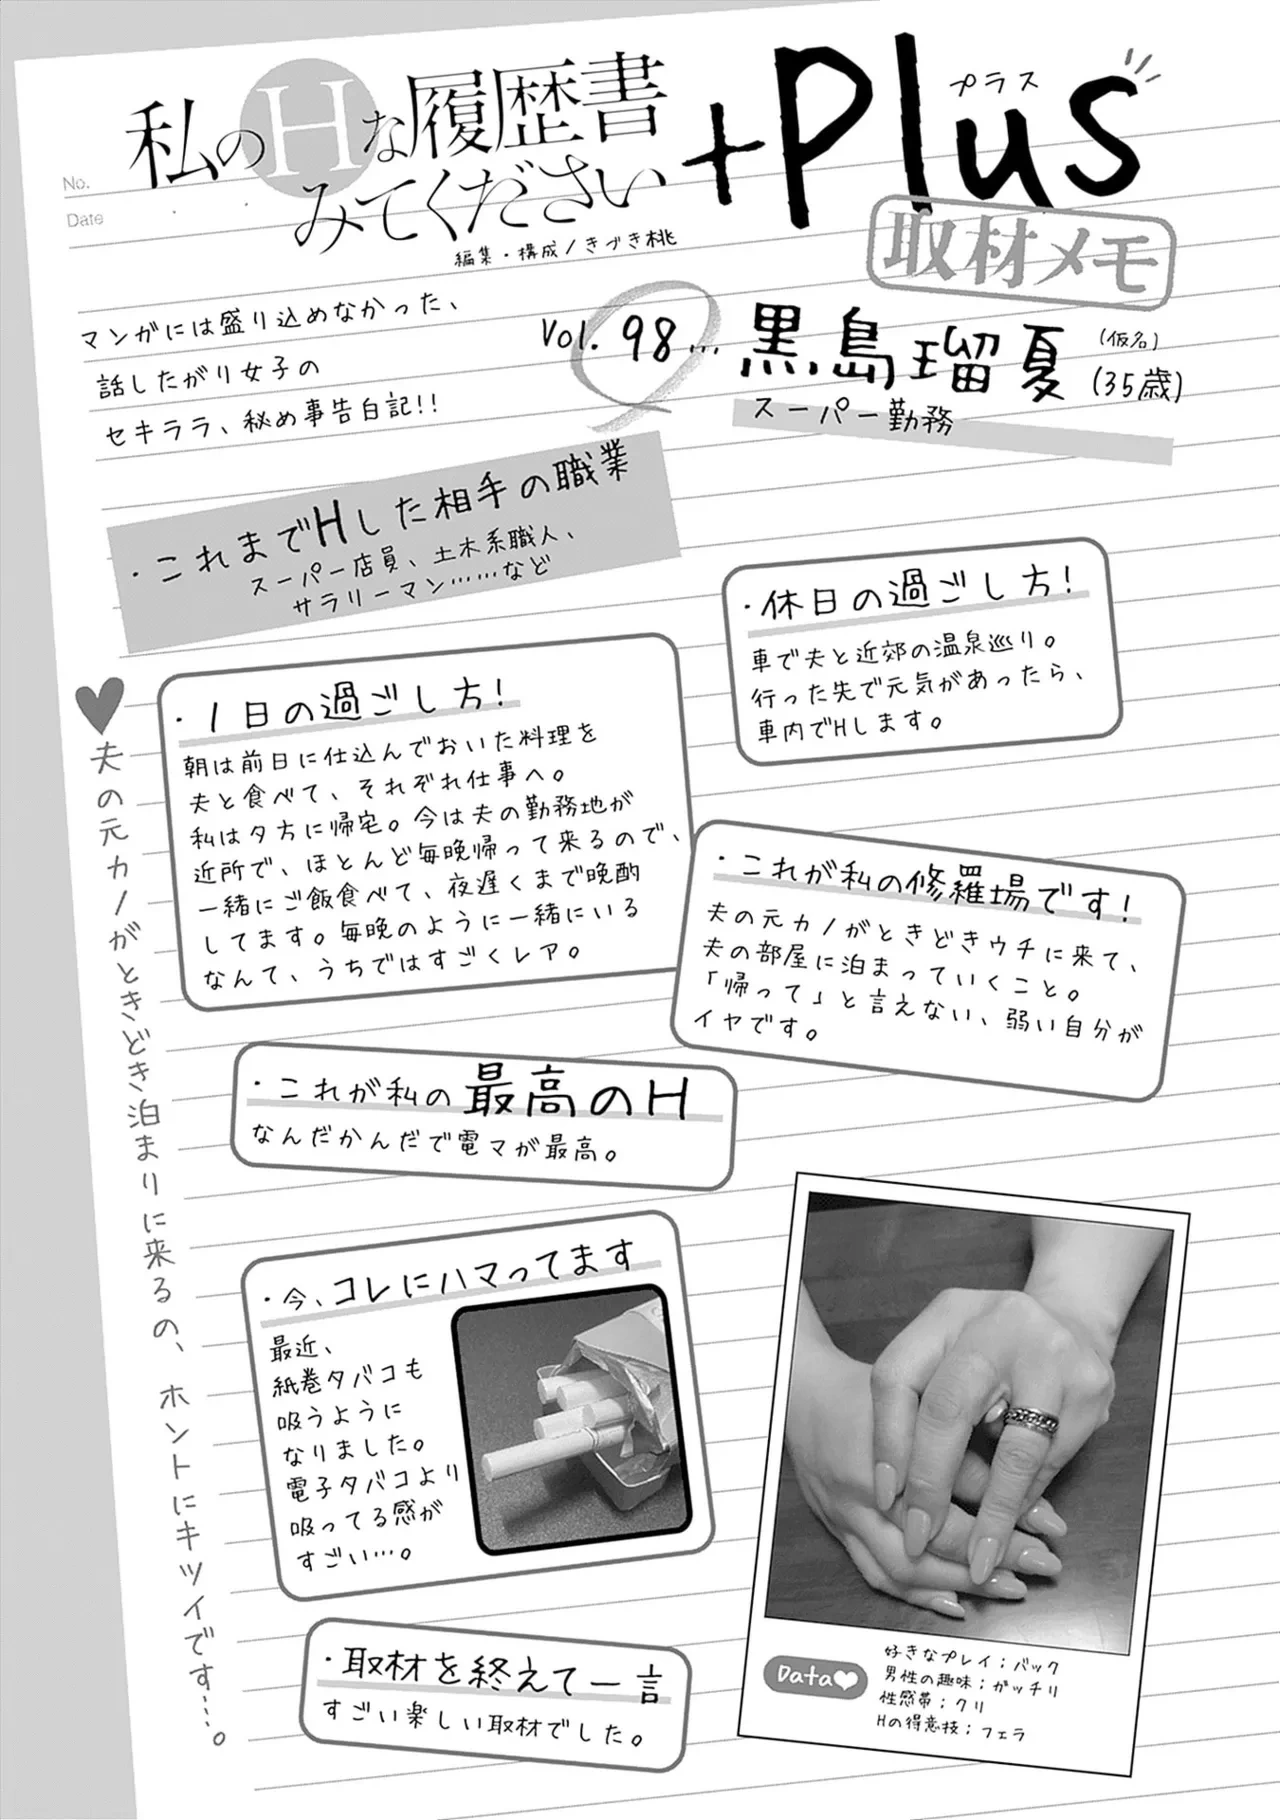 No.
Date
私のHな履歴書
みてください
+Plus
プラス
編集・構成/きづき桃
取材メモ
マンガには盛り込めなかった、
話したがり女子の
セキララ、秘め事告白記!!
Vol. 98…
黒島瑠夏
(仮名)
(35歳)
スーパー勤務
・これまでHした相手の職業
スーパー店員、土木系職人、
サラリーマン……など
・休日の過ごし方!
車で夫と近郊の温泉巡り。
行った先で元気があったら、
車内でHします。
・1日の過ごし方!
朝は前日に仕込んでおいた料理を
夫と食べて、それぞれ仕事へ。
私は夕方に帰宅。今は夫の勤務地が
近所で、ほとんど毎晩帰って来るので、
一緒にご飯食べて、夜遅くまで晩酌
してます。毎晩のように一緒にいる
なんて、うちではすごくレア。
・これが私の修羅場です!
夫の元カノがときどきウチに来て、
夫の部屋に泊まっていくこと。
「帰って」と言えない、弱い自分が
イヤです。
♥夫の元カノがときどき泊まりに来るの、ホントにキツイです…。
・これが私の最高のH
なんだかんだで電マが最高。
・今、コレにハマってます
最近、
紙巻タバコも
吸うように
なりました。
電子タバコより
吸ってる感が
すごい…。
・取材を終えて一言
すごい楽しい取材でした。
Data♥
好きなプレイ;バック
男性の趣味;ガッチリ
性感帯;クリ
Hの得意技;フェラ